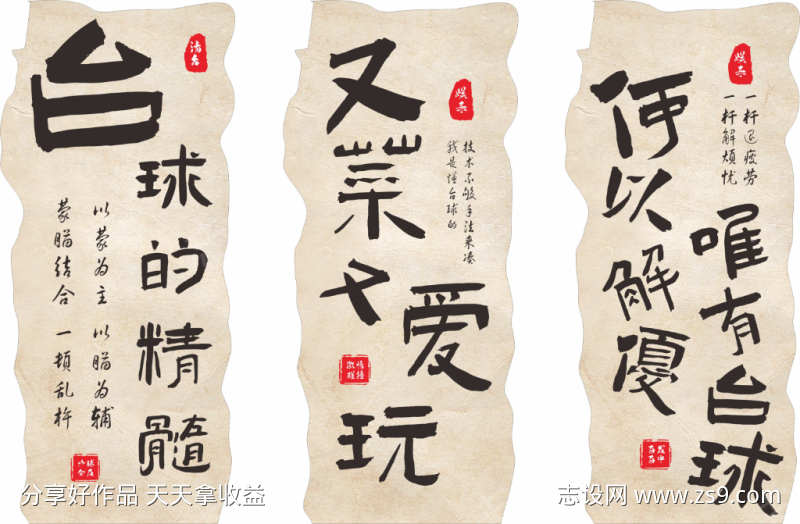 清台
台
球的精髓
以蒙为主 以瞄为辅
蒙瞄结合 一顿乱杵
娱乐
又菜又爱玩
技术不够手法来凑
我是懂台球的
娱乐
一杆退疲劳
一杆解烦忧
何以解憂
唯有台球
分享好作品 天天拿收益
志设网 www.zs9.com